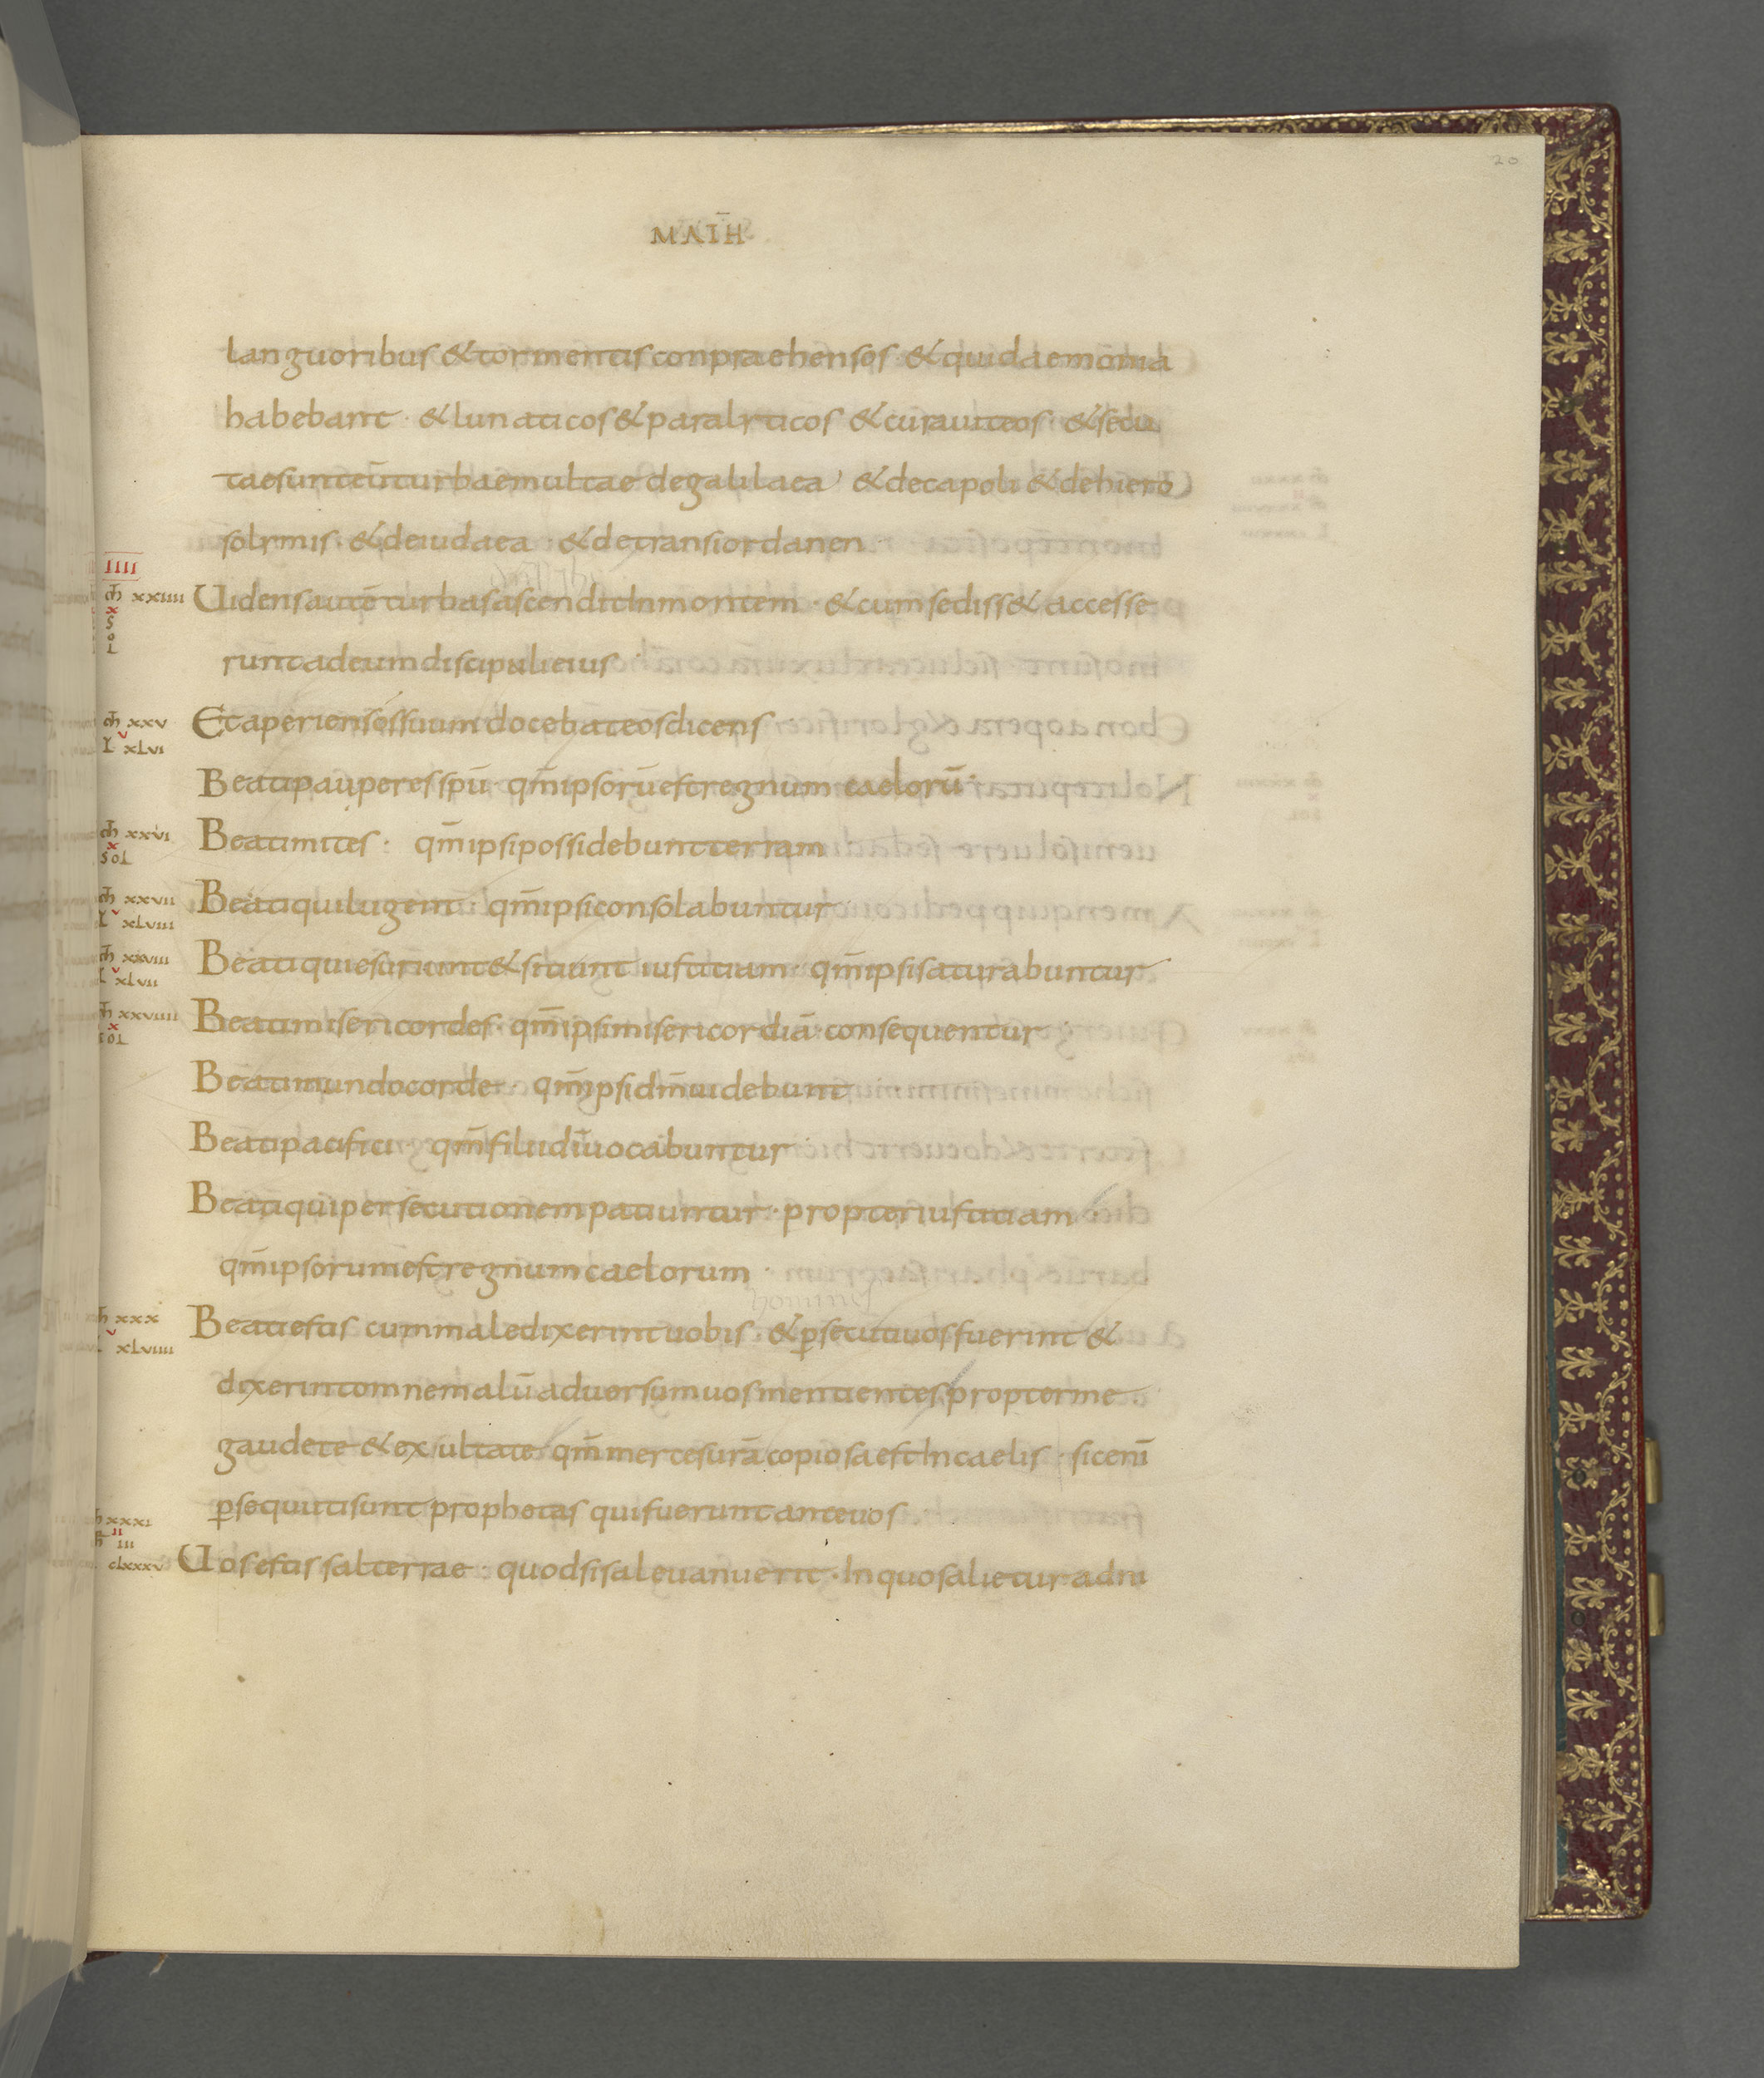 20
MATH
languoribus & tormentis conpraehensos · & qui daemonia
habebant · & lunaticos & paralyticos & curauit eos · & secu
tae sunt eū turbae multae de galilaea & decapoli & de hiero
solymis · & de iudaea · & de transiordanen ·
IIII
m̄ xxiiii Uidens autē turbas ascendit In montem · & cum sediss& accesse
x
S
O
L
runt ad eum discipuli eius ·
m̄ xxv Et aperiens os suum docebat eos dicens ·
L v xLvi
Beati pauperes spū qm̄ ipsorū est regnum caelorū ·
m̄ xxvi Beati mites · qm̄ ipsi possidebunt terram
x
SOL
m̄ xxvii Beati qui lugent · qm̄ ipsi consolabuntur ·
L v xLviii
m̄ xxviii Beati qui esuriunt & sitiunt iustitiam · qm̄ ipsi saturabuntur
L v xLvii
m̄ xxviiii Beati misericordes · qm̄ ipsi misericordiā consequentur ·
x
SOL
Beati mundo corde · qm̄ ipsi dm̄ uidebunt
Beati pacifici · qm̄ filii dī uocabuntur ·
Beati qui persecutionem patiuntur · propter iustitiam
qm̄ ipsorum est regnum caelorum ·
homines
m̄ xxx Beati estis cum maledixerint uobis · & p̱secuti uos fuerint &
L v xLviiii
dixerint omne malū aduersum uos mentientes propter me ·
gaudete & exultate qm̄ merces urā copiosa est In caelis · sic enī
p̱sequuti sunt prophetas qui fuerunt ante uos ·
xxxi
ii
iii
cLxxxv Uos estis sal terrae · quod si sal euanuerit · In quo salietur ad ni